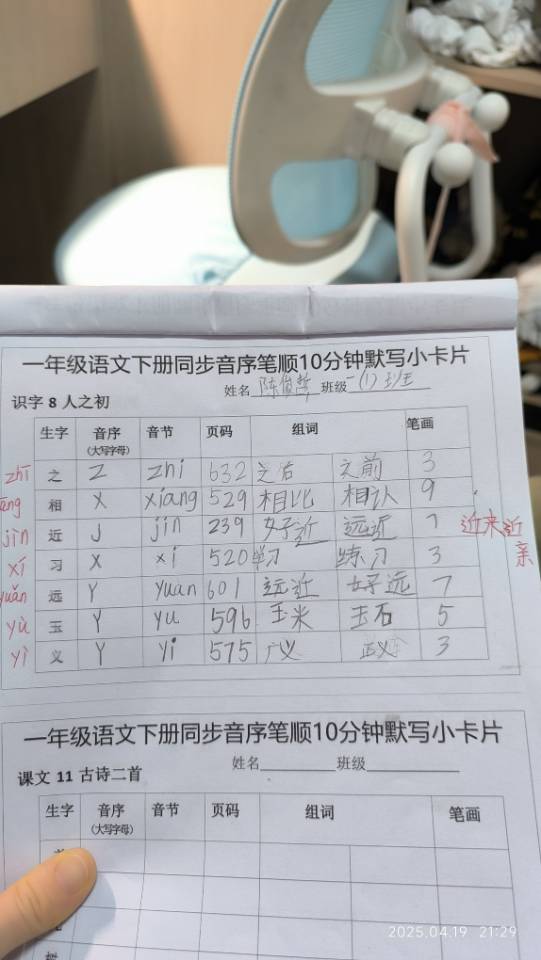 一年级语文下册同步音序笔顺10分钟默写小卡片
识字 8 人之初 姓名 陈俊哲 班级 一(1)班
生字 音序 音节 页码 组词 笔画
(大写字母)
zhī 之 Z zhi 632 之后 之前 3
相 X xiang 529 相比 相认 9
jìn 近 J jin 239 好近 远近 7 近来近
xí 习 X xi 520 学习 练习 3 亲
yuǎn 远 Y yuan 601 远近 好远 7
yù 玉 Y yu 596 玉米 玉石 5
yì 义 Y yi 575 广义 正义 3
一年级语文下册同步音序笔顺10分钟默写小卡片
课文 11 古诗二首 姓名 班级
生字 音序 音节 页码 组词 笔画
(大写字母)
2025.04.19 21:29